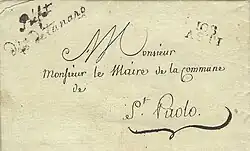 Préft
du Dt de Tanaro
108
ASTI
Monsieur
Monsieur le Maire de la commune
de
St Paolo.